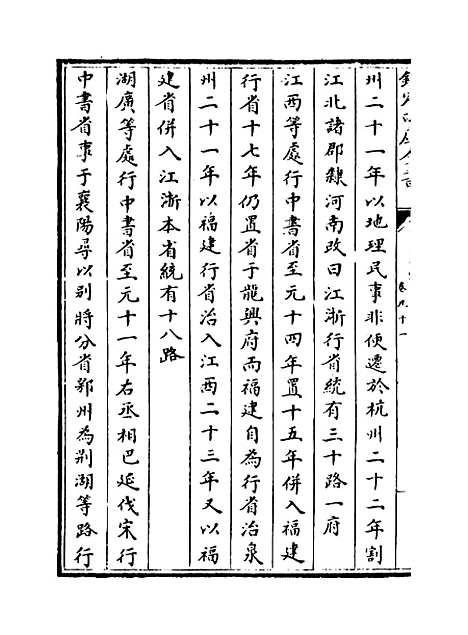 欽定四庫全書
卷九十一
州二十一年以地理民事非便遷於杭州二十二年割
江北諸郡隸河南改曰江浙行省統有三十路一府
江西等處行中書省至元十四年置十五年併入福建
行省十七年仍置省于龍興府而福建自為行省治泉
州二十一年以福建行省治入江西二十三年又以福
建省併入江浙本省統有十八路
湖廣等處行中書省至元十一年右丞相巴延伐宋行
中書省事于襄陽尋以别將分省鄂州為荆湖等路行